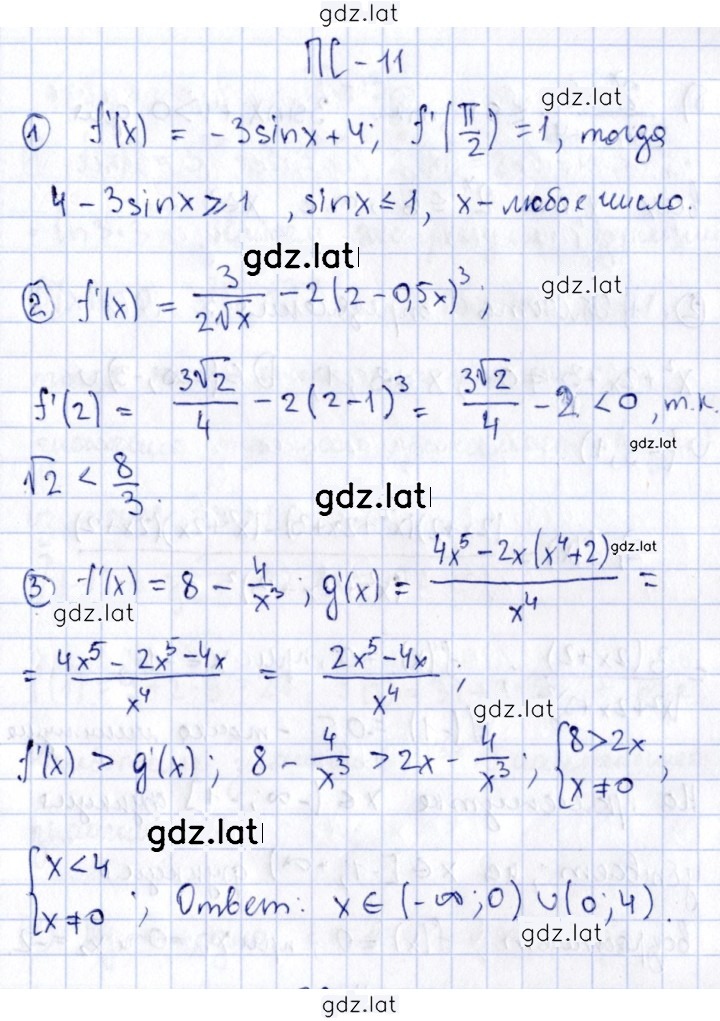 gdz.lat
ПС-11
gdz.lat
① f'(x) = -3sinx+4; f'(π/2) = 1, тогда
4 - 3sinx ⩾ 1, sinx ≤ 1, x - любое число.
gdz.lat
gdz.lat
② f'(x) = 3/(2√x) - 2(2 - 0,5x)³;
f'(2) = 3√2/4 - 2(2-1)³ = 3√2/4 - 2 < 0, т.к.
gdz.lat
√2 < 8/3.
gdz.lat
③ f'(x) = 8 - 4/x³; g'(x) = (4x⁵ - 2x(x⁴+2))/x⁴ =
gdz.lat
gdz.lat
= (4x⁵ - 2x⁵ - 4x)/x⁴ = (2x⁵ - 4x)/x⁴;
gdz.lat
f'(x) > g'(x); 8 - 4/x³ > 2x - 4/x³; {8 > 2x x ≠ 0;
gdz.lat
{x < 4 x ≠ 0; Ответ: x ∈ (-∞; 0) ∪ (0; 4).
gdz.lat
gdz.lat